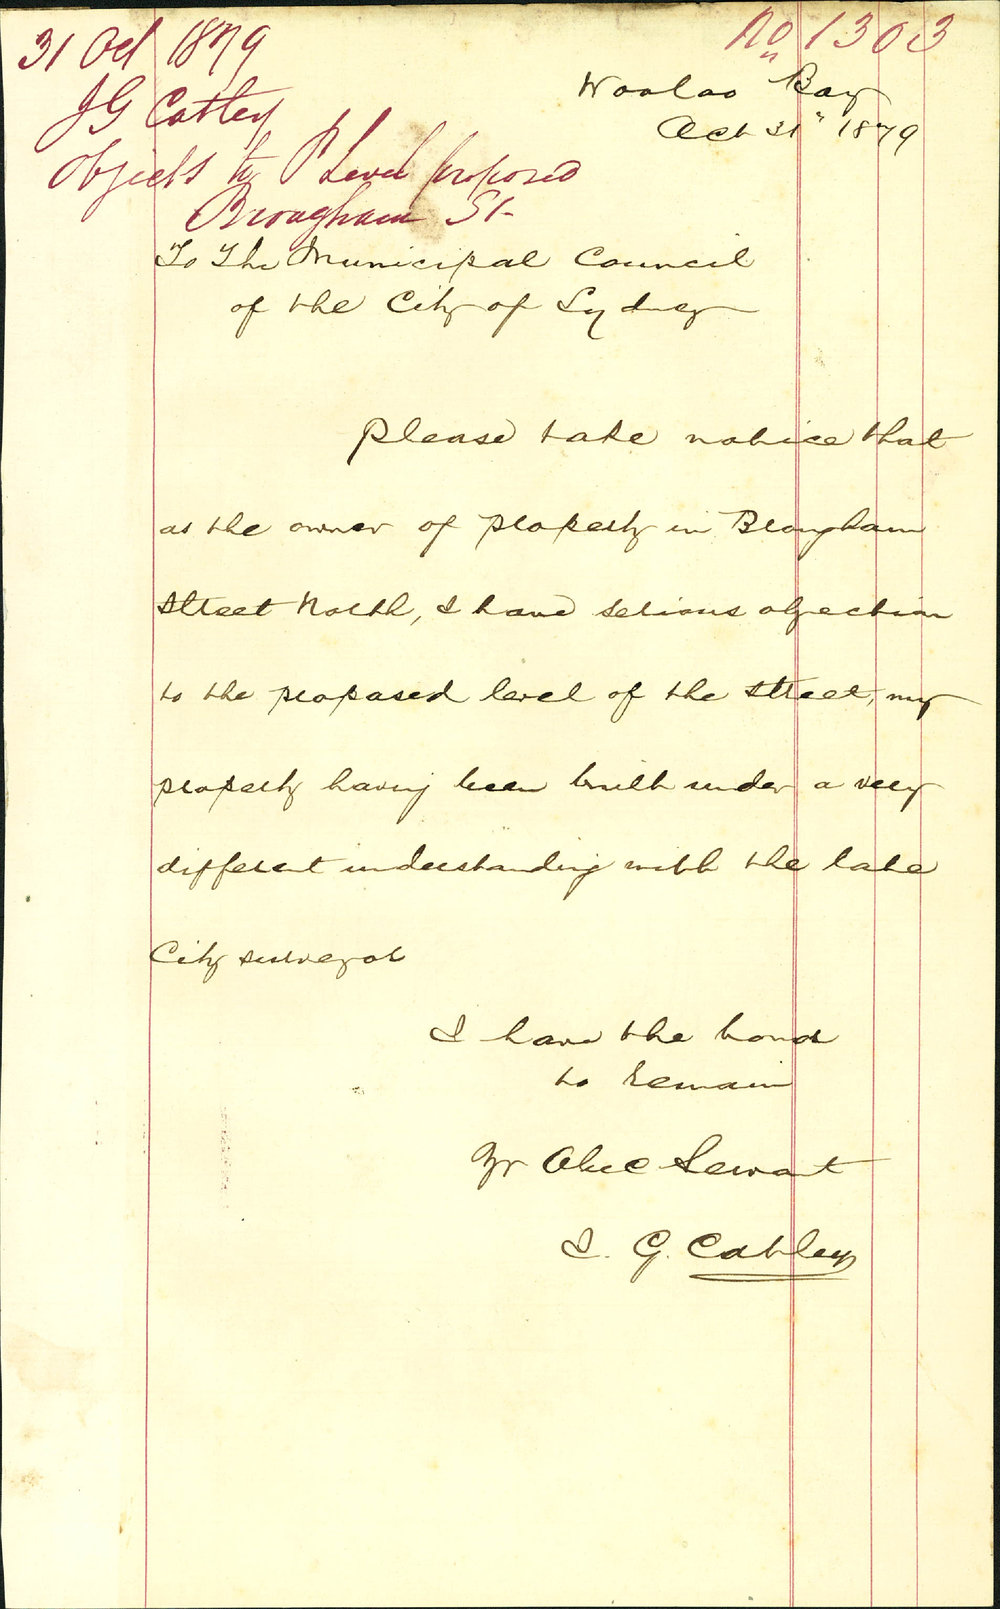 31 Oct 1879
No 1303
J G Catley
Objects to P Level proposed
Brougham St-
Wooloo Bay
Oct 31" 1879
To The Municipal Council
of the City of Sydney
Please take notice that
as the owner of property in Brougham
Street North, I have serious objection
to the proposed level of the street, my
property having been built under a very
different understanding with the late
City surveyor
I have the honor
to remain
Yr Obec Servant
I. G. Catley